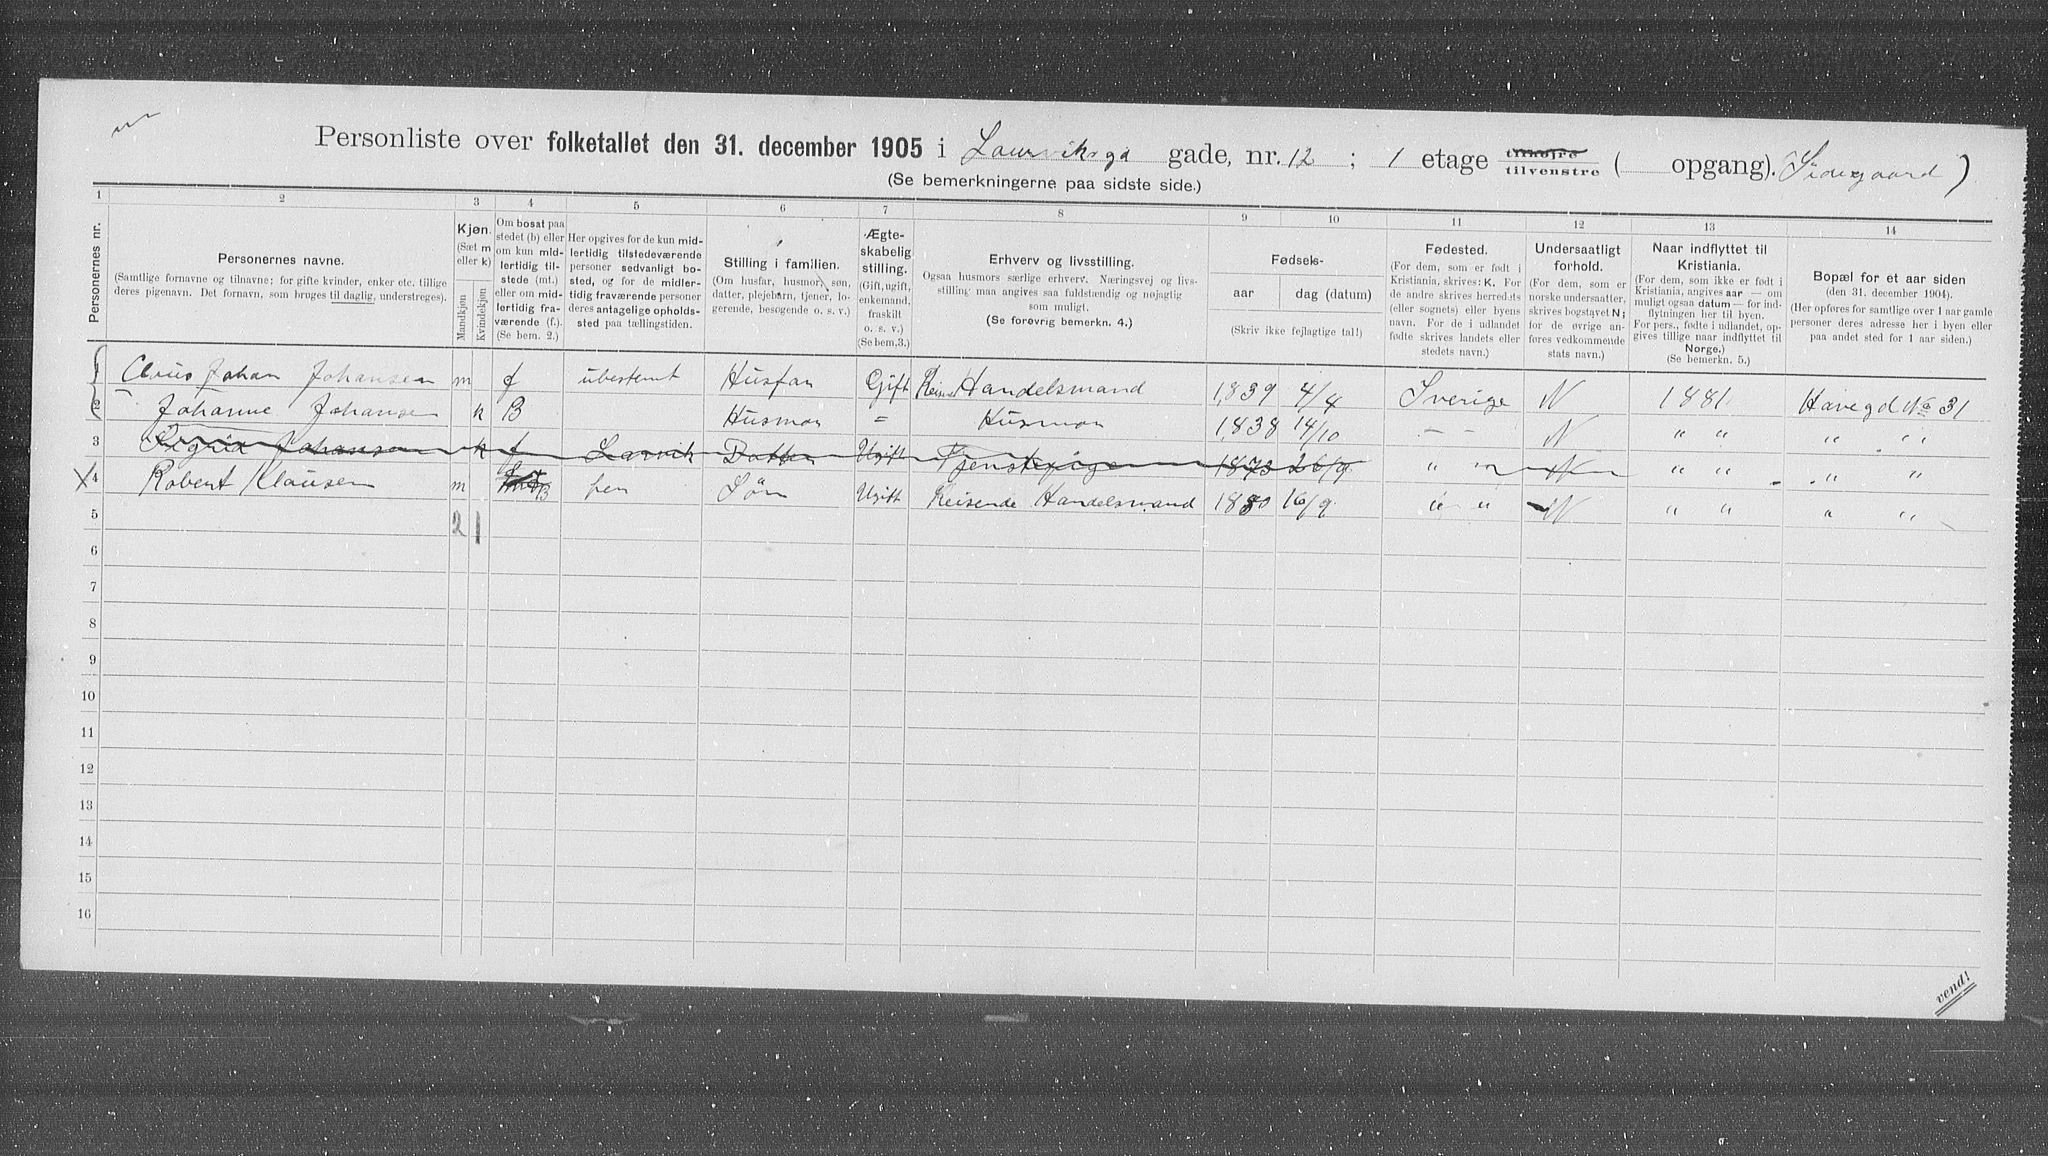 Personliste over folketallet den 31. december 1905 i Laurviksgd gade, nr. 12 ; 1 etage tilhøjre tilvenstre ( opgang). (Sidegaard)
(Se bemerkningerne paa sidste side.)
1 2 3 4 5 6 7 8 9 10 11 12 13 14
Personernes nr.
Personernes navne.
(Samtlige fornavne og tilnavne; for gifte kvinder, enker etc. tillige
deres pigenavn. Det fornavn, som bruges til daglig, understreges).
Kjøn.
(Sæt m
eller k)
Mandkjøn
Kvindekjøn
Om bosat paa
stedet (b) eller
om kun mid-
lertidig til-
stede (mt.)
eller om mid-
lertidig fra-
værende (f.).
(Se bem. 2.)
Her opgives for de kun mid-
lertidig tilstedeværende
personer sedvanligt bo-
sted, og for de midler-
tidig fraværende personer
deres antagelige opholds-
sted paa tællingstiden.
Stilling i familien.
(Om husfar, husmor, søn,
datter, plejebarn, tjener, lo-
gerende, besøgende o. s. v.)
Ægte-
skabelig
stilling.
(Gift, ugift,
enkemand,
fraskilt
o. s. v.)
(Se bem.3.)
Erhverv og livsstilling.
Ogsaa husmors særlige erhverv. Næringsvej og livs-
stilling maa angives saa fuldstændig og nøjagtig
som muligt.
(Se forøvrig bemerkn. 4.)
Fødsels-
aar dag (datum)
(Skriv ikke fejlagtige tal!)
Fødested.
(For dem, som er født i
Kristiania, skrives: K. For
de andre skrives herredets
(eller sognets) eller byens
navn. For de i udlandet
fødte skrives landets eller
stedets navn.)
Undersaatligt
forhold.
(For dem, som er
norske undersaatter,
skrives bogstavet N;
for de øvrige an-
føres vedkommende
stats navn.)
Naar indflyttet til
Kristiania.
(For dem, som ikke er født i
Kristiania, angives aar — om
muligt ogsaa datum — for ind-
flytningen her til byen.
For pers., fødte i udlandet, op-
gives tillige naar indflyttet til
Norge.)
(Se bemerkn. 5.)
Bopæl for et aar siden
(den 31. december 1904).
(Her opføres for samtlige over 1 aar gamle
personer deres adresse her i byen eller
paa andet sted for 1 aar siden.)
1 Claus Johan Johansen m f ubestemt Husfar Gift Reisende Handelsmand 1839 4/4 Sverige N 1881 Havegd No 31
2 Johanne Johansen k B Husmor = Husmor 1838 14/10 — — N " " " "
3 Sigrid Johansen k f Larvik Datter Ugift Tjenstepige 1873 26/9 " " N " " " "
4 Robert Klausen m B hen Søn Ugift Reisende Handelsmand 1880 16/9 " " N " " " "
5 2 1
6
7
8
9
10
11
12
13
14
15
16
vend!